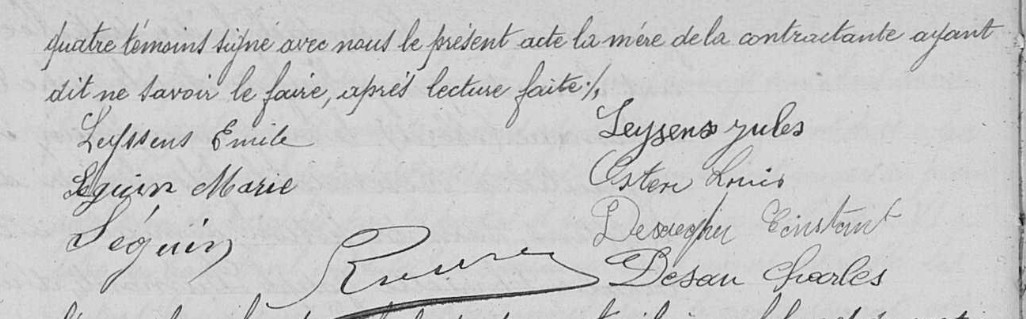 quatre témoins signé avec nous le présent acte la mère de la contractante ayant
dit ne savoir le faire, après lecture faite ./.
Leyssens Emile
Leyssens Jules
Seguin Marie
Osten Louis
Séguin
Constant
Desau Charles